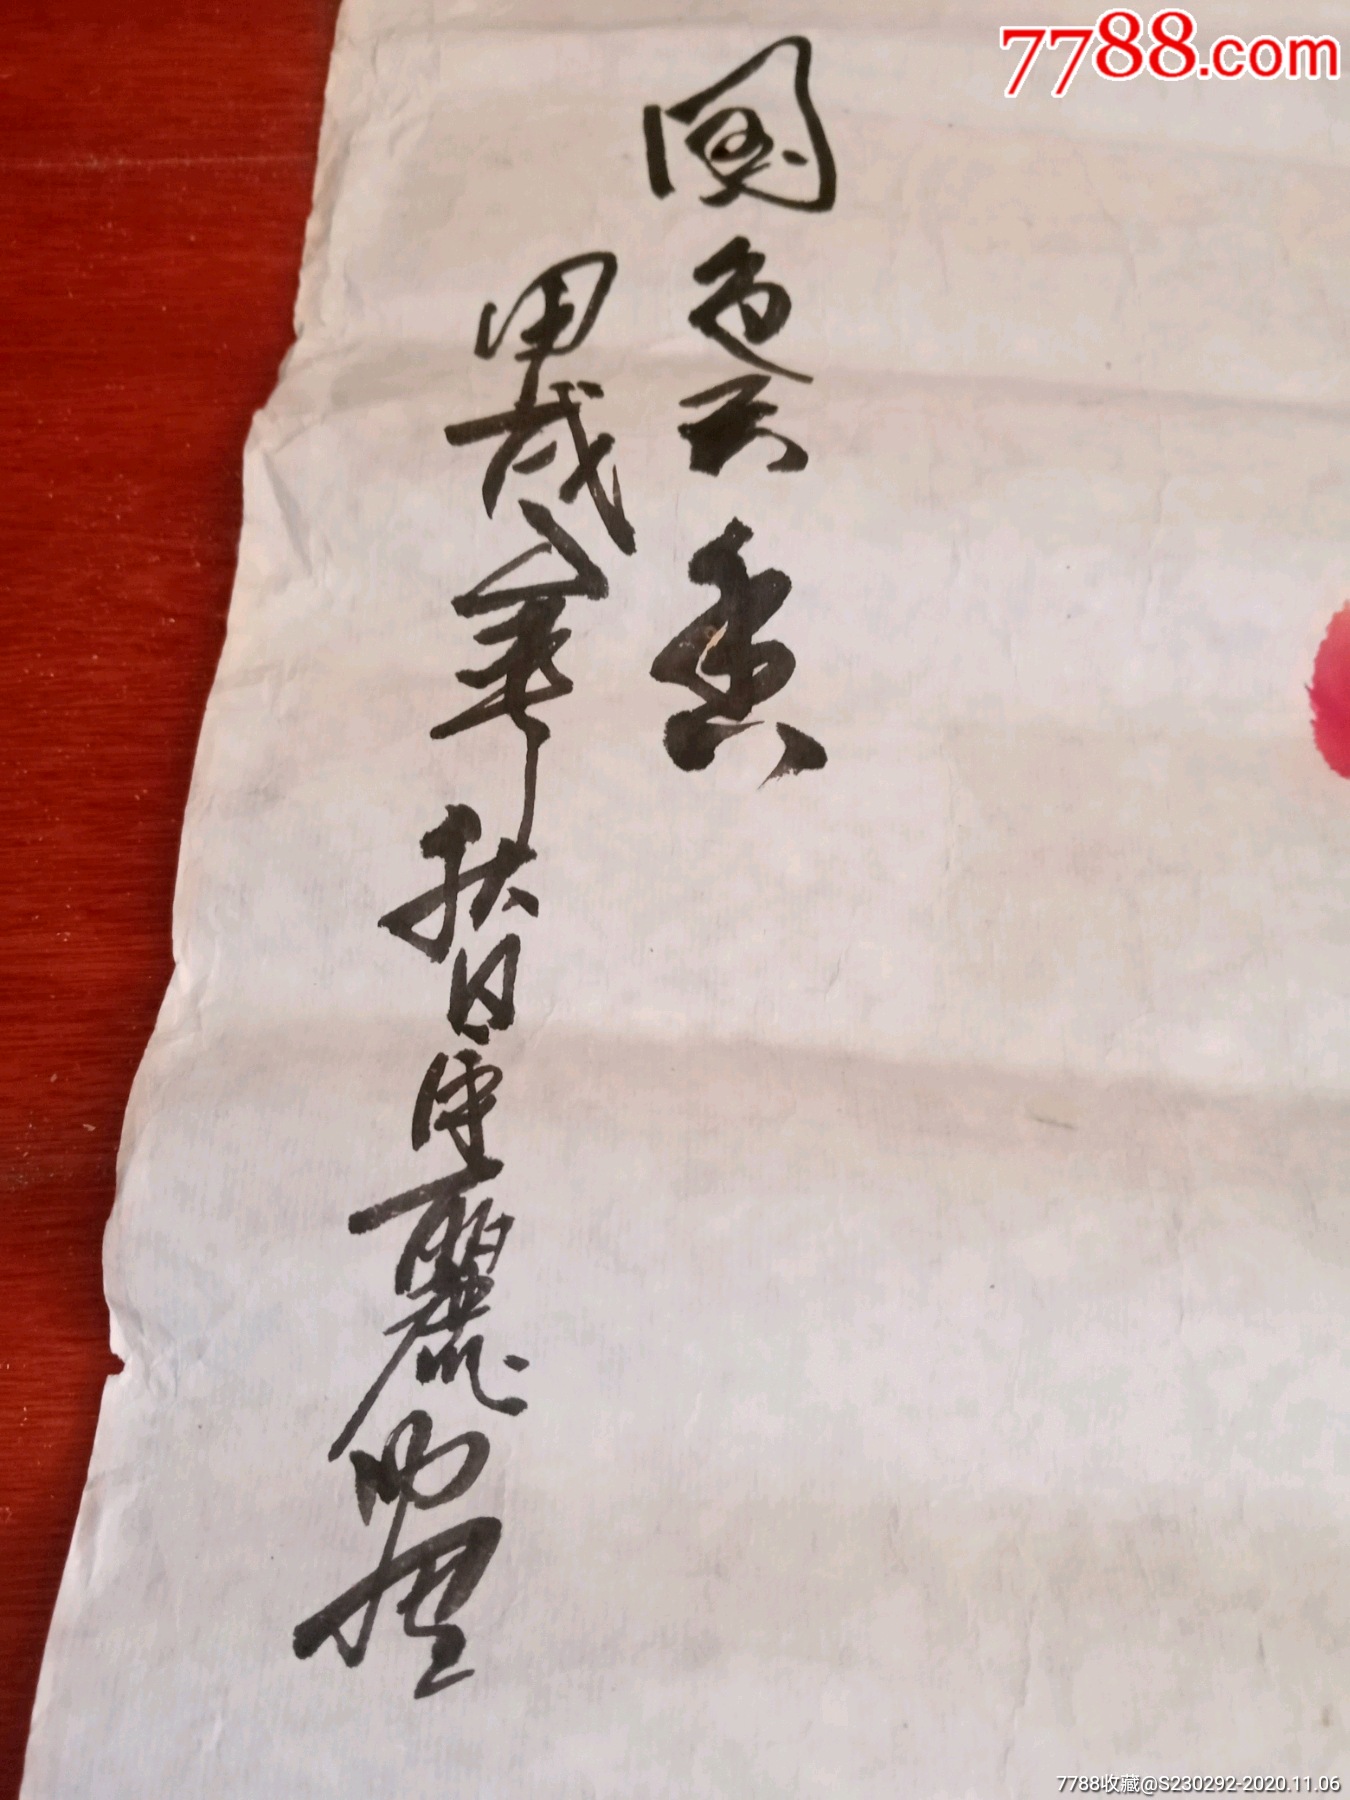 7788.com
國色天香
甲戌年秋日 麗
7788收藏@S230292-2020.11.06